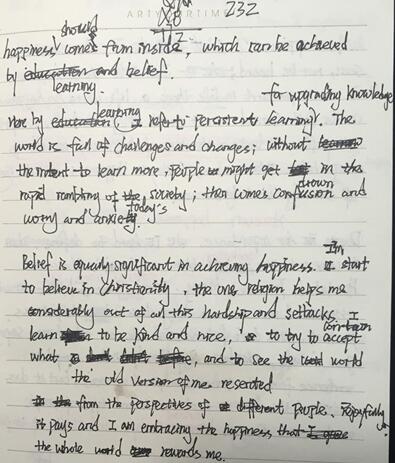 ARTY
232
112
should
happiness comes from inside, which can be achieved
by education and belief.
learning.
for upgrading knowledge
Here by education learning I refer to persistent learning. The
world is full of challenges and changes; without
the intent to learn more, people might get in the
rapid of the society; then comes confusion and
today's
worry and anxiety.
Belief is equally significant in achieving happiness. I'm start
to believe in Christianity, the one religion helps me
considerably out of all this hardship and setbacks. I
learn to be kind and nice, to try to accept
what, and to see the world
the old version of me resented
from the perspectives of different people. Hopefully
it pays and I am embracing the happiness that
the whole world rewards me.